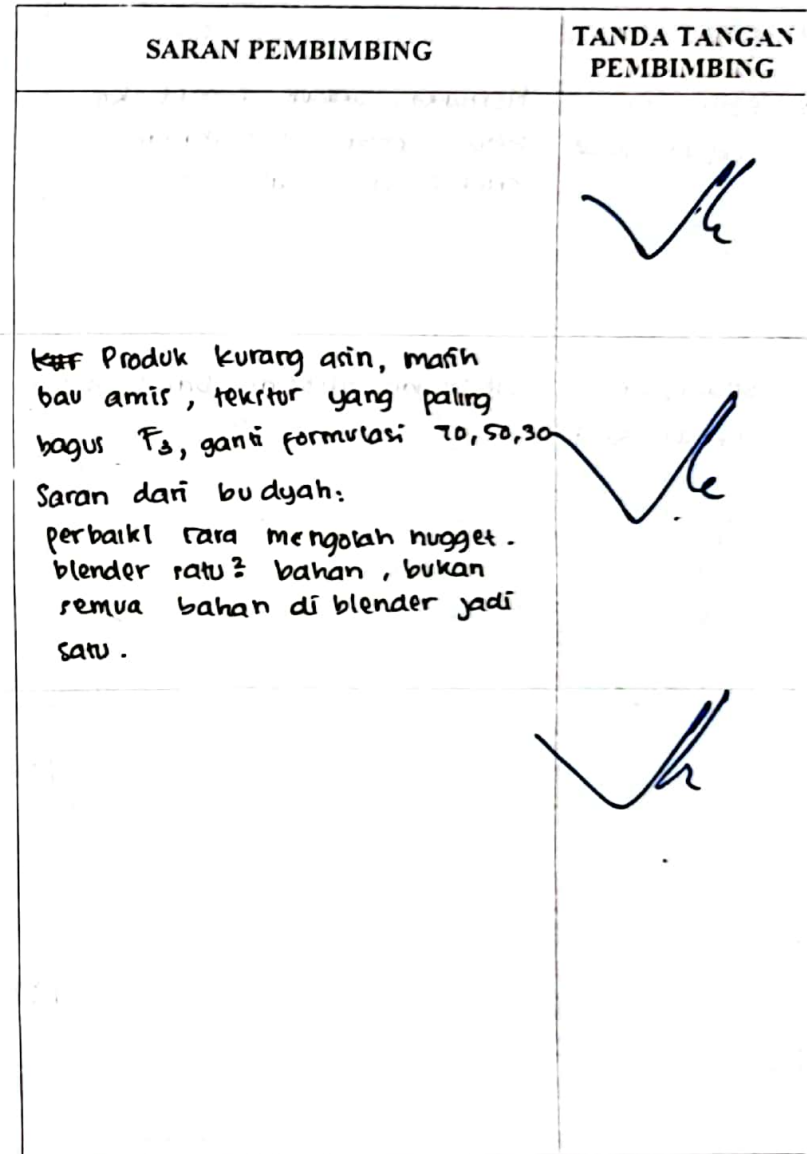 SARAN PEMBIMBING
TANDA TANGAN
PEMBIMBING
Produk kurang asin, masih
bau amis, tekstur yang paling
bagus F3, ganti formulasi 70, 50, 30
Saran dari bu dyah:
perbaiki cara mengolah nugget.
blender satu² bahan, bukan
semua bahan di blender jadi
satu.